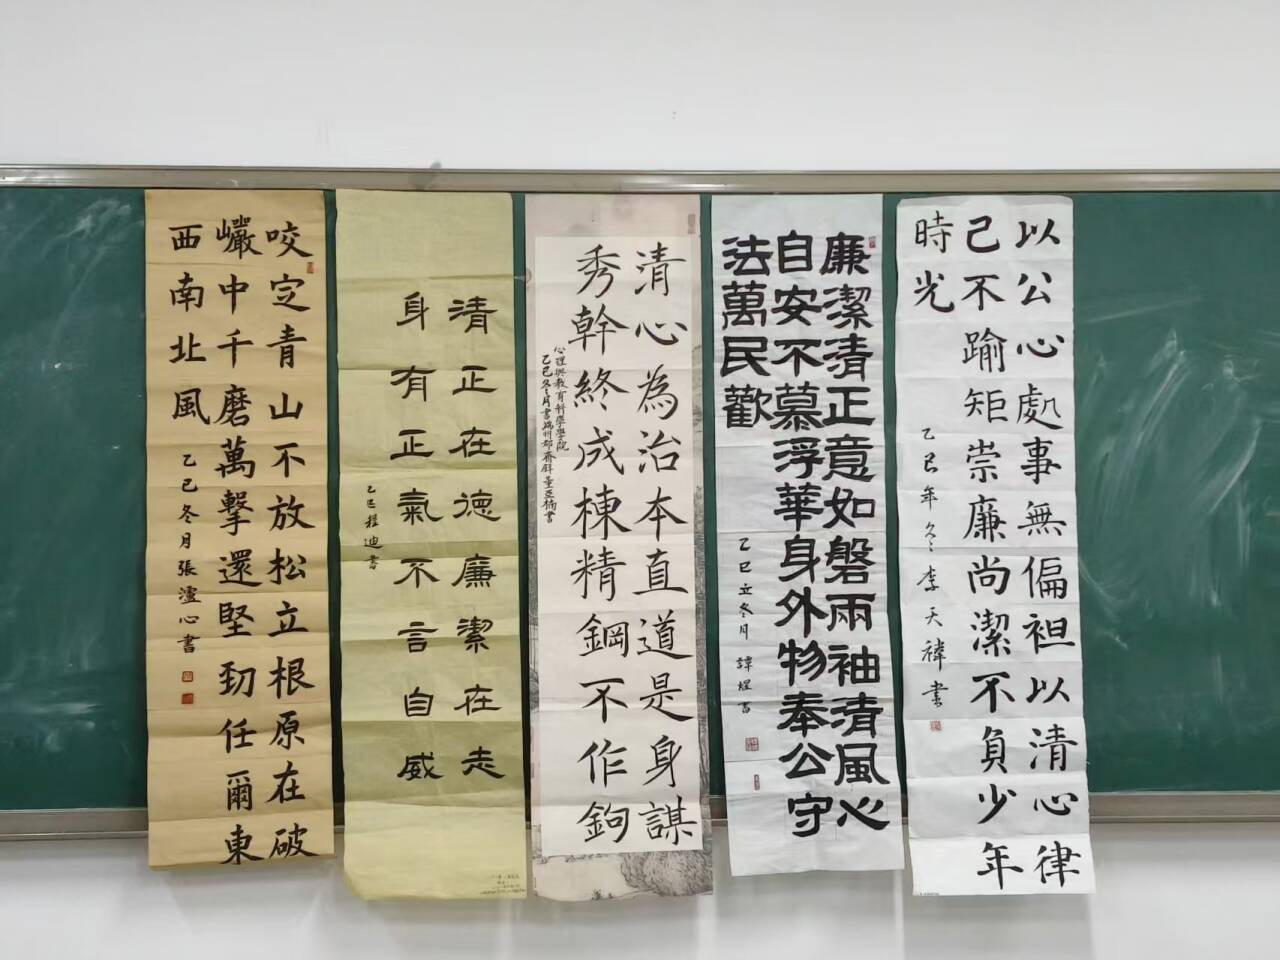 以公心處事無偏袒以清心律
己不踰矩崇廉尚潔不負少年
時光
乙巳年冬李天禕書
廉潔清正意如磐兩袖清風心
自安不慕浮華身外物奉公守
法萬民歡
乙巳立冬月 譚煜書
清心為治本直道是身謀
秀幹終成棟精鋼不作鉤
心理與教育科學學院
乙巳冬月書端州郡齋壁董亞楠書
清正在德廉潔在走
身有正氣不言自威
乙巳程迪書
咬定青山不放松立根原在破
巗中千磨萬擊還堅劲任爾東
西南北風
乙巳冬月張瀘心書